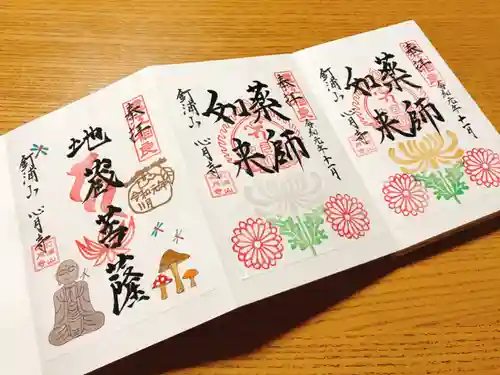 奉拝
令和元年十一月
薬師
如来
釘浦山 心月寺
奉拝
令和元年十一月
薬師
如来
釘浦山 心月寺
奉拝
地蔵菩薩
令和元年
11月
釘浦山 心月寺